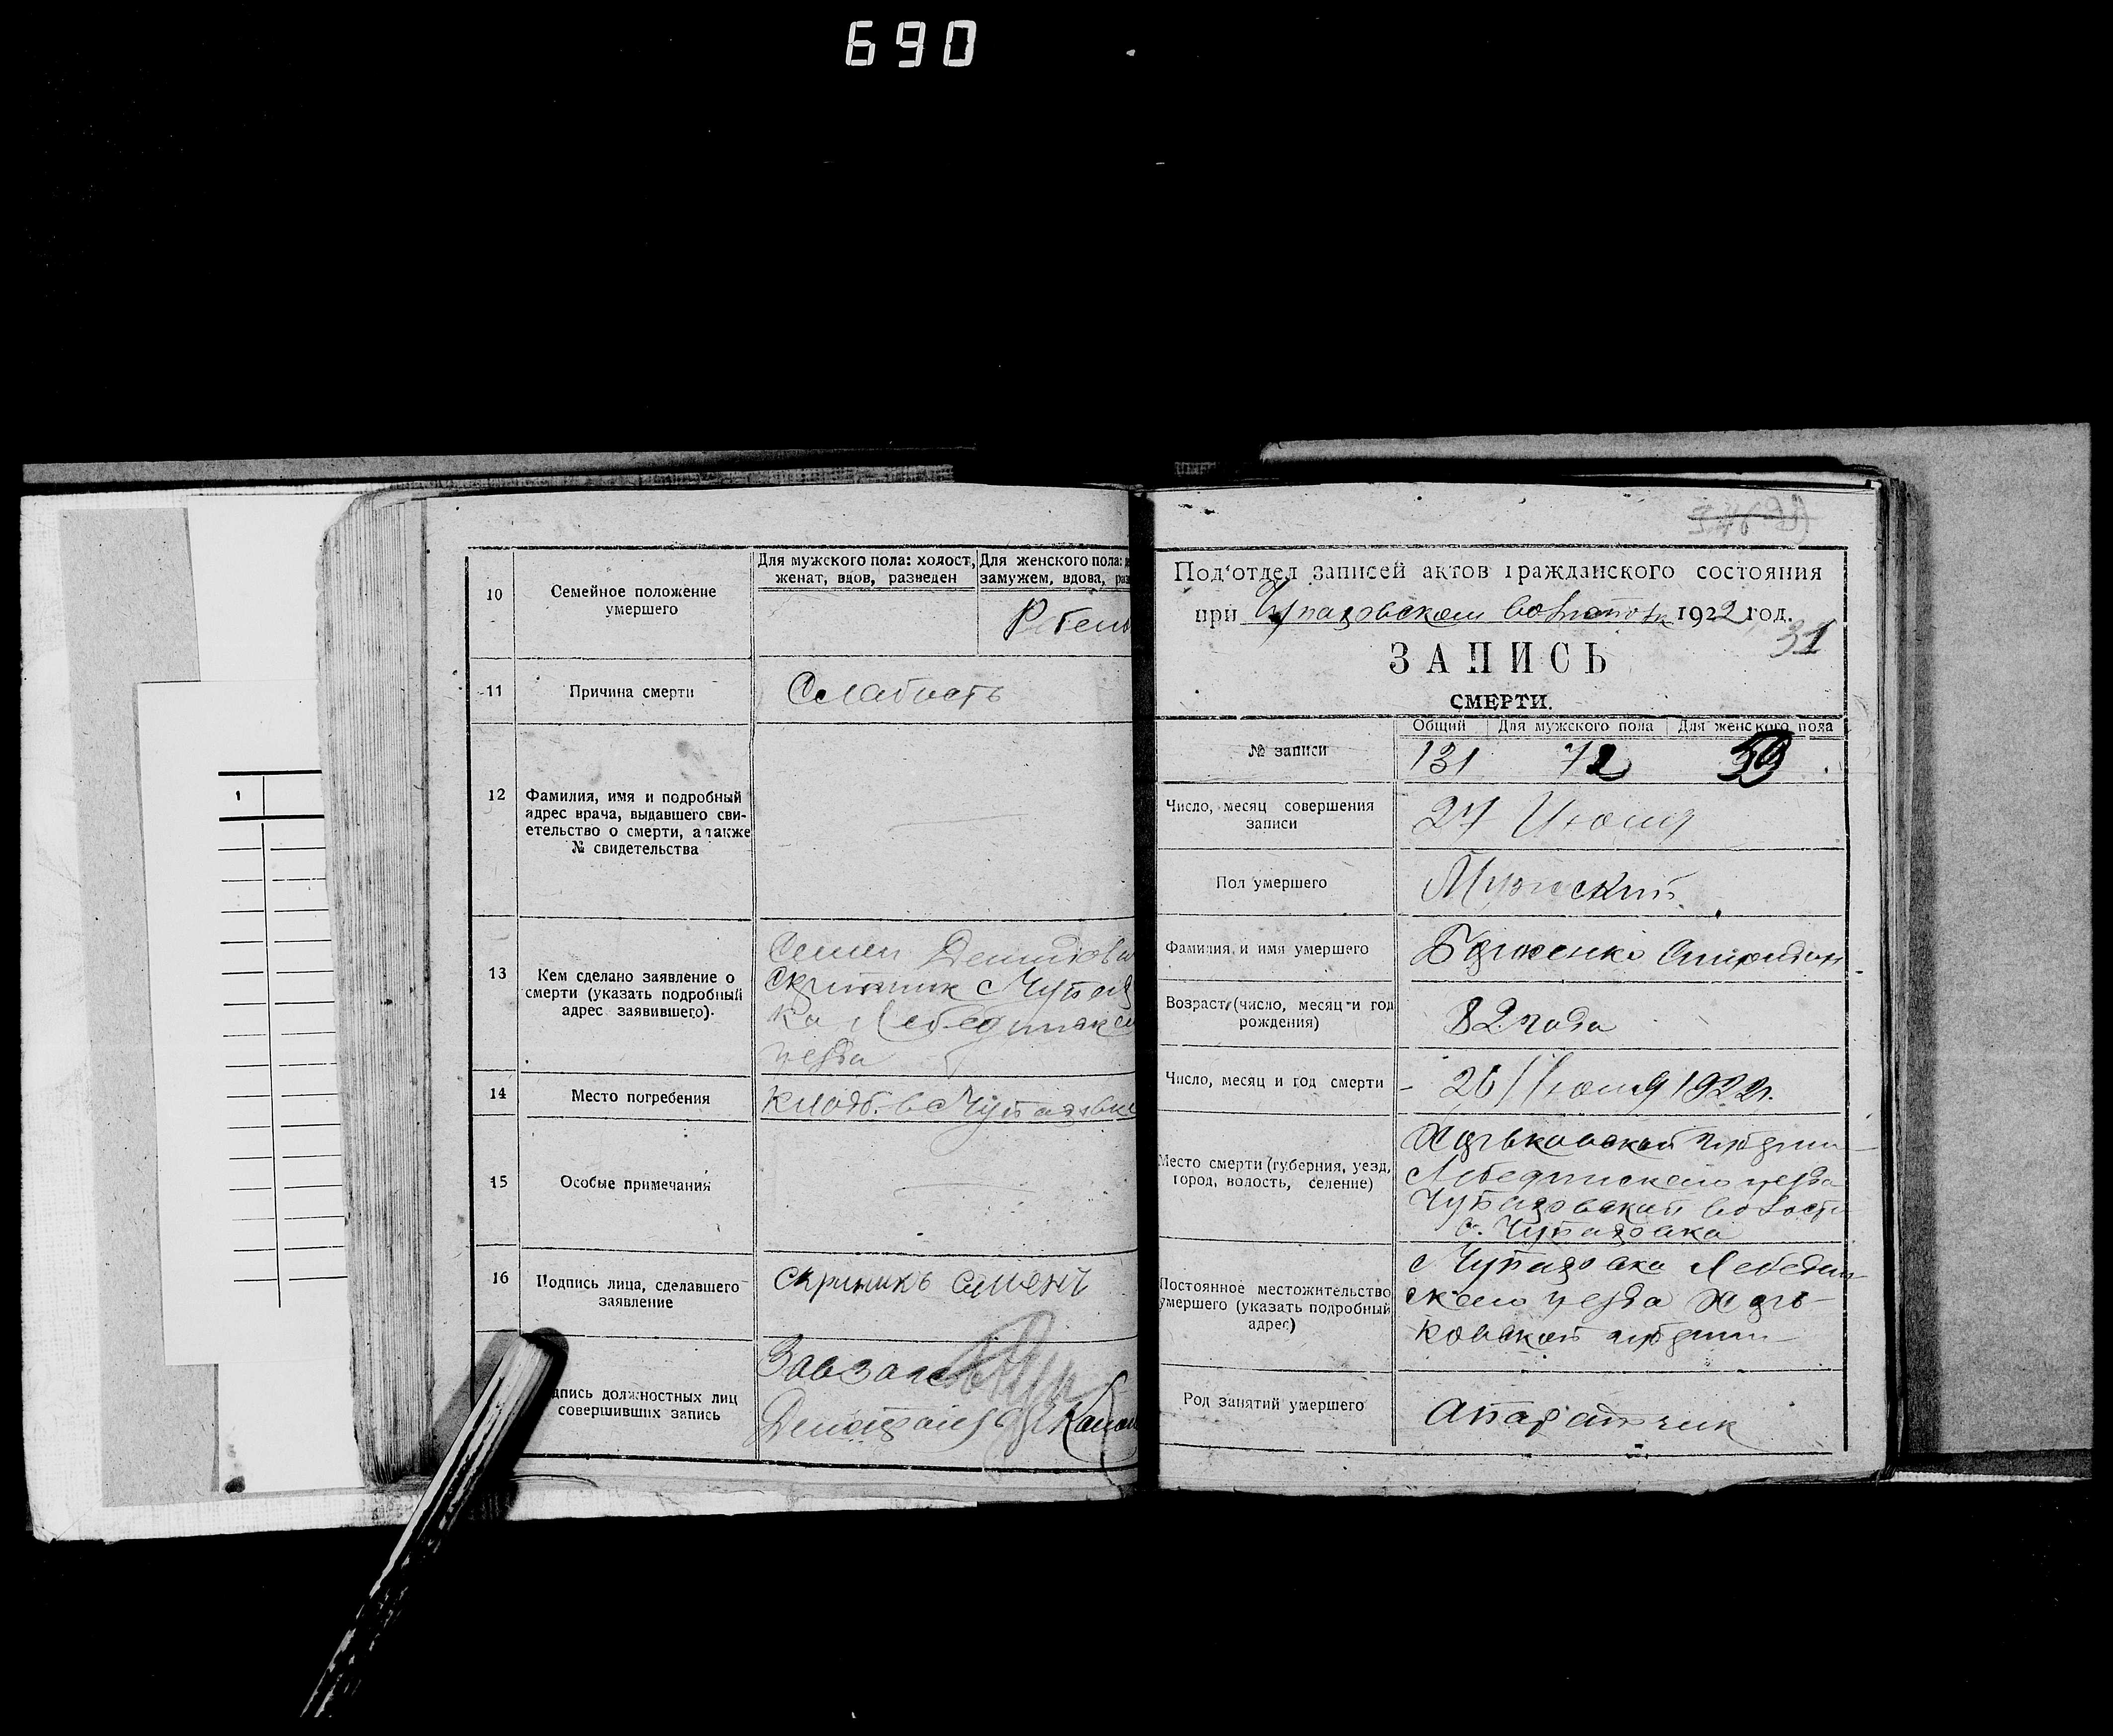 690
10
Семейное положение
умершего
Для мужского пола: холост,
женат, вдов, разведен
Для женского пола:
замужем, вдова, раз
11
Причина смерти
Слабость
12
Фамилия, имя и подробный
адрес врача, выдавшего сви-
етельство о смерти, а также
№ свидетельства
13
Кем сделано заявление о
смерти (указать подробный
адрес заявившего).
Семен
с Чупахов
ка Лебединском
уезда
14
Место погребения
кладб. в с Чупаховке
15
Особые примечания
16
Подпись лица, сделавшего
заявление
Скриникъ Сменъ
дпись должностных лиц
совершивших запись
Завзагс
1
Под'отдел записей актов гражданского состояния
при Чупаховском 1922 год.
31
ЗАПИСЬ
СМЕРТИ.
№ записи
Общий Для мужского пола Для женского пола
131 72 59
Число, месяц совершения
записи
27 Июня
Пол умершего
Мужский
Фамилия и имя умершего
Спиридон
Возраст (число, месяц и год
рождения)
82 года
Число, месяц и год смерти
26 Июня 1922 г.
Место смерти (губерния, уезд,
город, волость, селение)
Харьковской губерни
Лебединского уезда
Чупаховской волости
с. Чупаховка
Постоянное местожительство
умершего (указать подробный
адрес)
с Чупаховка Лебедин-
ского уезда Харь-
ковской губернии
Род занятий умершего